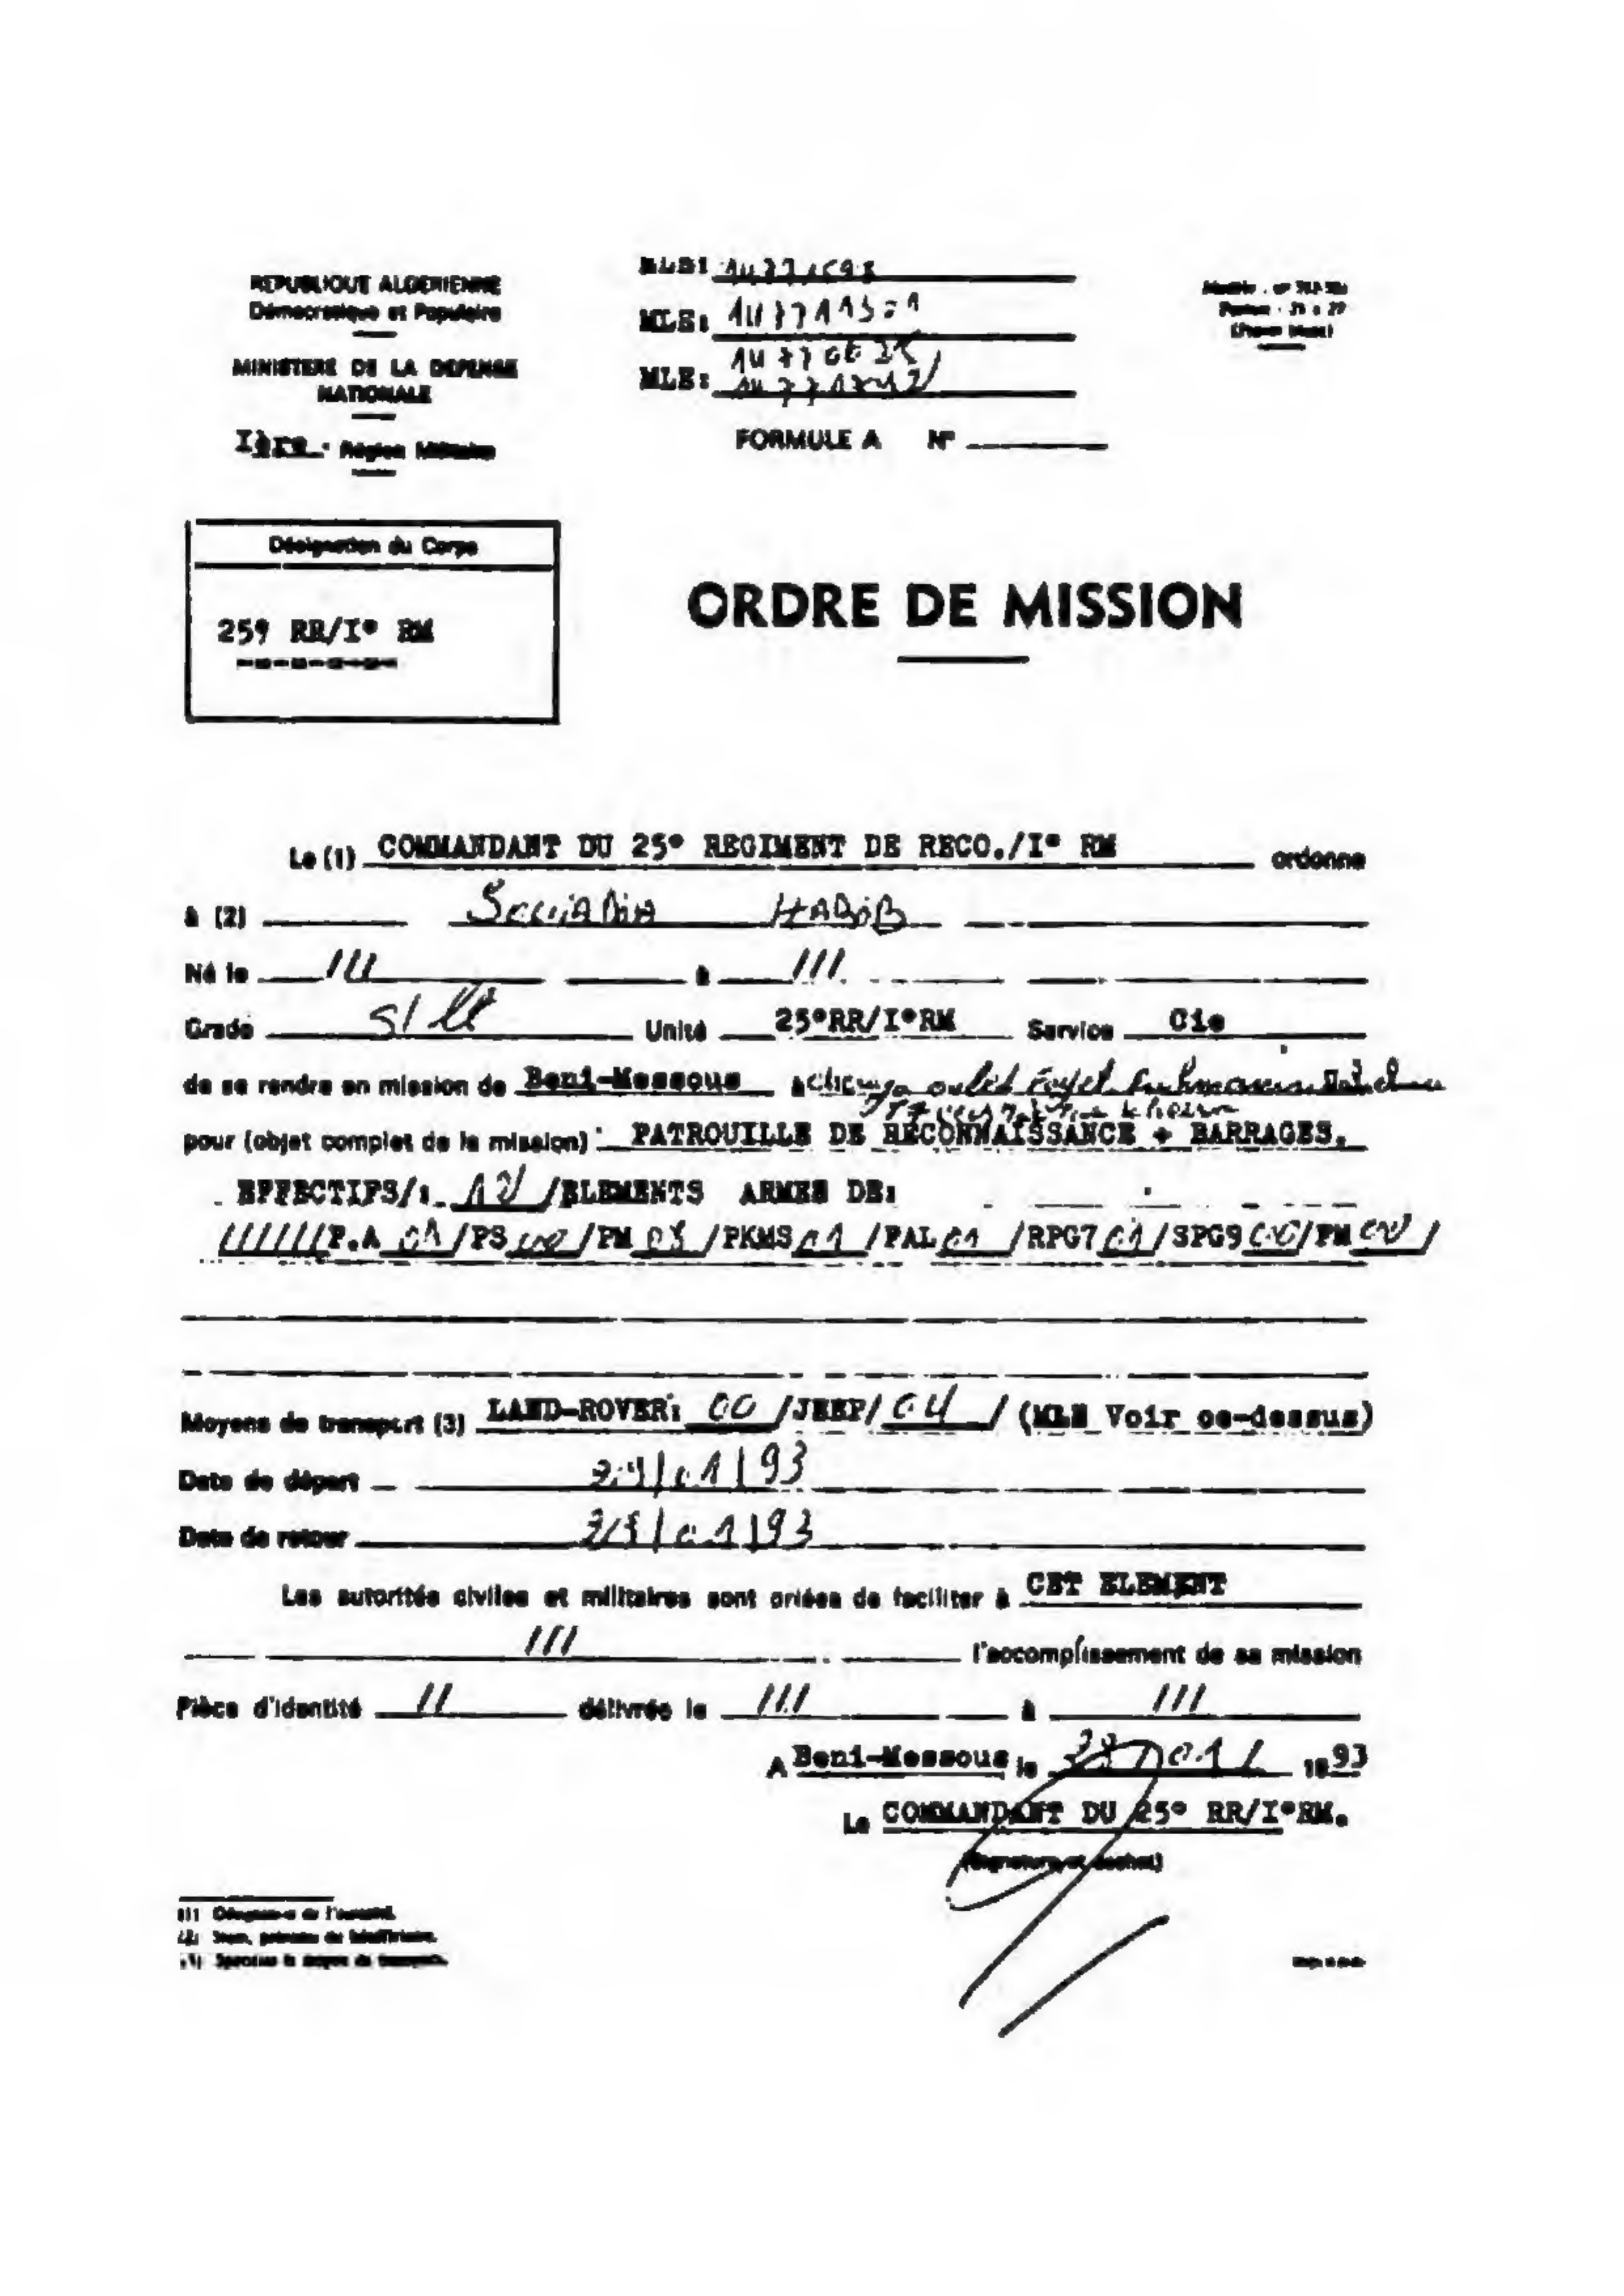 REPUBLIQUE ALGERIENNE
Démocratique et Populaire
MINISTERE DE LA DEFENSE
NATIONALE
Ière. Région Militaire
MLE:
MLE:
MLE:
FORMULE A N°
Désignation du Corps
25° RR/I° RM
ORDRE DE MISSION
Le (1) COMMANDANT DU 25° REGIMENT DE RECO./I° RM ordonne
à (2) SOUAIDIA HABIB
Né le /// à ///
Grade S/Lt Unité 25°RR/I°RM Service Cie
de se rendre en mission de Beni-Messous à
pour (objet complet de la mission) : PATROUILLE DE RECONNAISSANCE + BARRAGES.
EFFECTIFS/: /ELEMENTS ARMES DE:
///////P.A 01 /PS 00 /PM 08 /PKMS 01 /FAL 01 /RPG7 01 /SPG9 00 /FM 00 /
Moyens de transport (3) LAND-ROVER: 00 /JEEP/ 04 / (MLE Voir ce-dessus)
Date de départ /01/93
Date de retour /01/93
Les autorités civiles et militaires sont priées de faciliter à CET ELEMENT
/// l'accomplissement de sa mission
Pièce d'identité // délivrée le /// à ///
A Beni-Messous le /01/ 1993
Le COMMANDANT DU 25° RR/I°RM.
(Signature et cachet)
(1) Désignation de l'autorité.
(2) Nom, prénoms du bénéficiaire.
(3) Spécifier le moyen de transport.